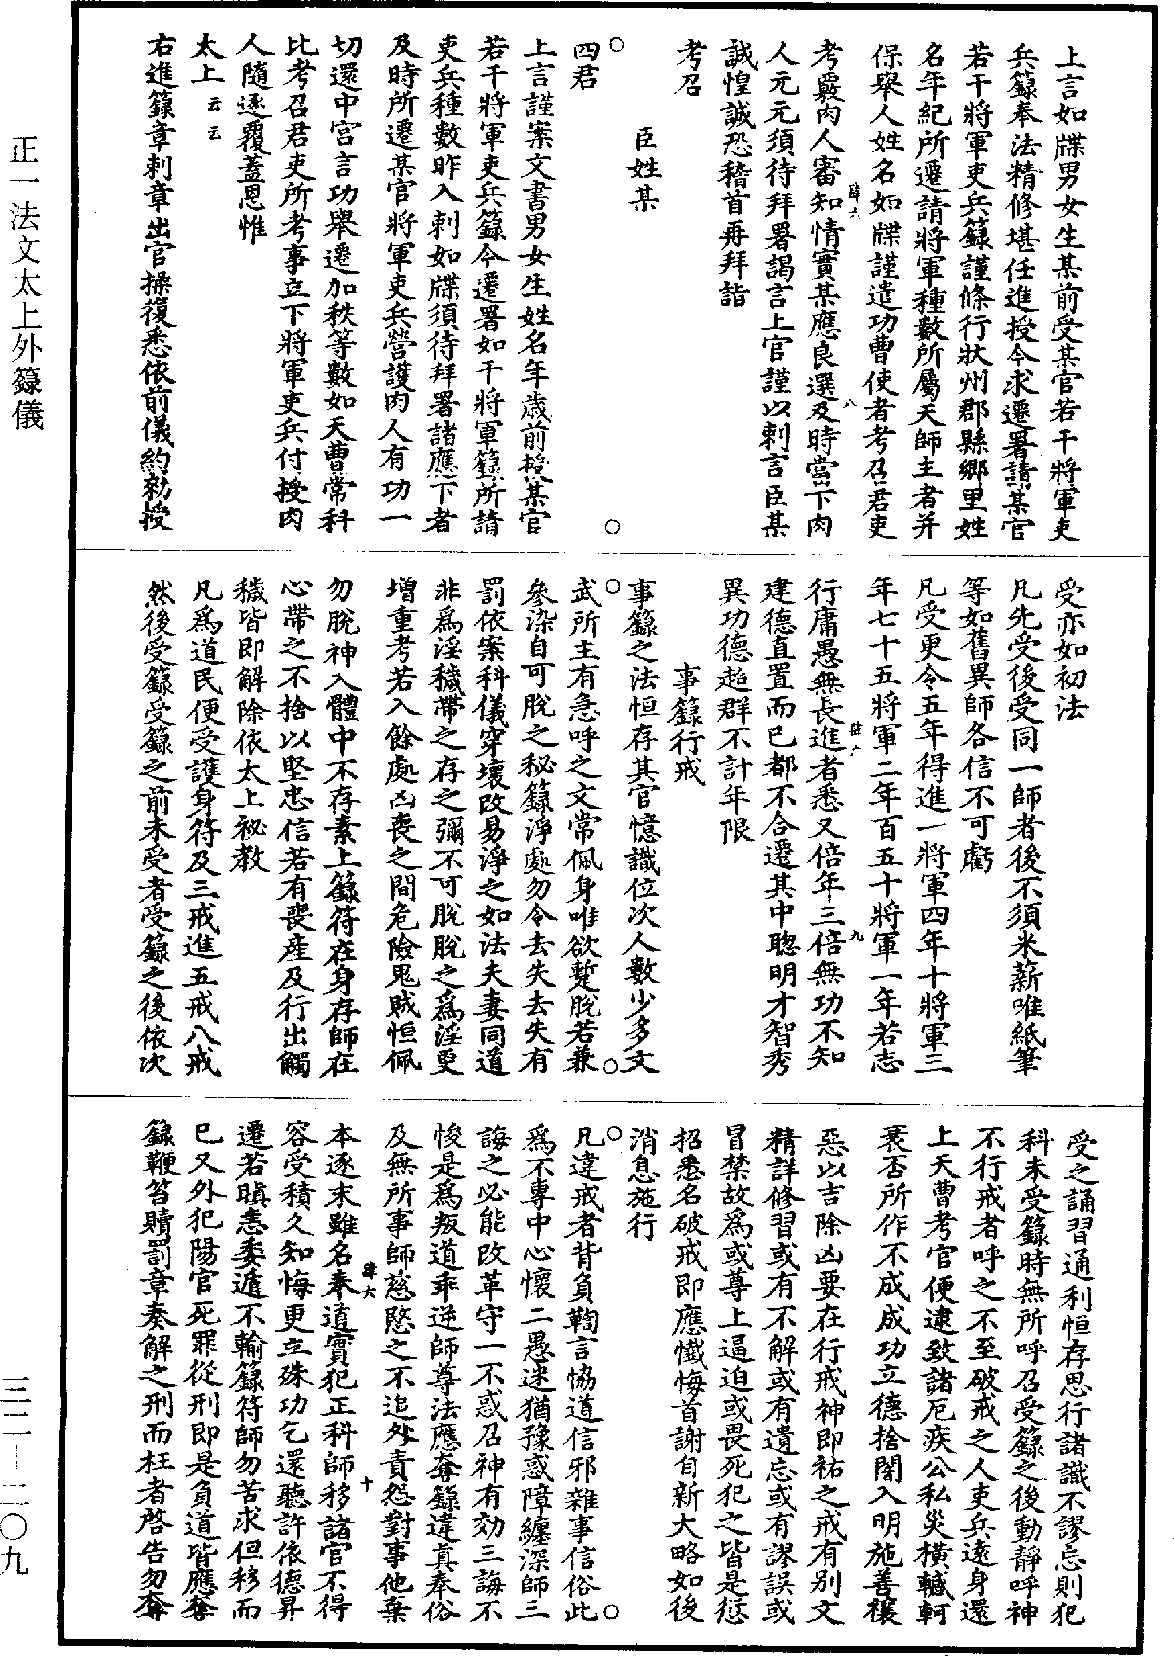 上言如牒男女生某前受某官若干將軍吏
兵籙奉法精修堪任進授今求遷署請某官
若干將軍吏兵籙謹條行狀州郡縣鄉里姓
名年紀所遷請將軍種數所屬天師主者并
保舉人姓名如牒謹遣功曹使者考召君吏
考覈肉人審知情實某應良選及時當下肉
人元元須待拜署謁言上官謹以剌言臣某
誠惶誠恐稽首再拜詣
考召
臣姓某
四君
上言謹案文書男女生姓名年歲前授某官
若干將軍吏兵籙今遷署如干將軍籙所請
吏兵種數昨入剌如牒須待拜署諸應下者
及時所遷某官將軍吏兵營護肉人有功一
切還中宮言功舉遷加秩等數如天曹常科
比考召君吏所考事立下將軍吏兵付授肉
人隨逐覆蓋恩惟
太上云云
右進籙章刺章出官操復悉依前儀約勑授
受亦如初法
凡先受後受同一師者後不須米薪唯紙筆
等如舊異師各信不可虧
凡受更令五年得進一將軍四年十將軍三
年七十五將軍二年百五十將軍一年若志
行庸愚無長進者悉又倍年三倍無功不知
建德直置而已都不合遷其中聰明才智秀
異功德超群不計年限
事籙行戒
事籙之法恒存其官憶識位次人數少多文
武所主有急呼之文常佩身唯欲蹔脫若兼
參染自可脫之秘籙淨處勿令去失去失有
罰依案科儀穿壞改易淨之如法夫妻同道
非為淫穢帶之存之彌不可脫脫之為淫更
增重考若入餘處凶喪之間危險鬼賊恒佩
勿脫神入體中不存素上籙符在身存師在
心帶之不捨以堅忠信若有喪產及行出觸
穢皆即解除依太上祕教
凡為道民便受護身符及三戒進五戒八戒
然後受籙受籙之前未受者受籙之後依次
受之誦習通利恒存思行諸識不謬忘則犯
科未受籙時無所呼召受籙之後動靜呼神
不行戒者呼之不至破戒之人吏兵遠身還
上天曹考官便逮致諸厄疾公私災橫轗軻
衰否所作不成成功立德捨闇入明施善禳
惡以吉除凶要在行戒神即祐之戒有別文
精詳修習或有不解或有遺忘或有謬誤或
冒禁故為或尊上逼迫或畏死犯之皆是愆
招悉名破戒即應懺悔首謝自新大略如後
消息施行
凡違戒者背負鞫言協道信邪雜事信俗此
為不專中心懷二愚迷猶豫惑障纏深師三
誨之必能改革守一不惑召神有効三誨不
悛是為叛道乖逆師尊法應奪籙違真奉俗
及無所事師慈愍之不追外責怨對事他棄
本逐末雖名奉道實犯正科師移諸官不得
容受積久知悔更立殊功乞還聽許依德昇
遷若瞋恚委遁不輸籙符師勿苦求但移而
已又外犯陽官死罪從刑即是負道皆應奪
籙鞭笞贖罰章奏解之刑而枉者啓告勿奪
正一法文太上外籙儀
三二－二〇九